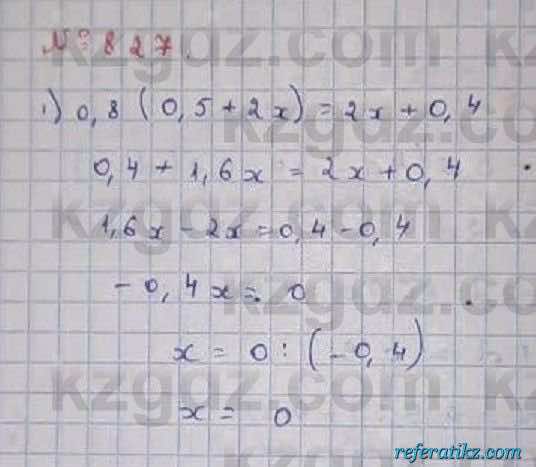 № 827.
1) 0,8 (0,5 + 2x) = 2x + 0,4
0,4 + 1,6x = 2x + 0,4
1,6x - 2x = 0,4 - 0,4
- 0,4x = 0
x = 0 : (-0,4)
x = 0
kzgdz.com
referatikz.com